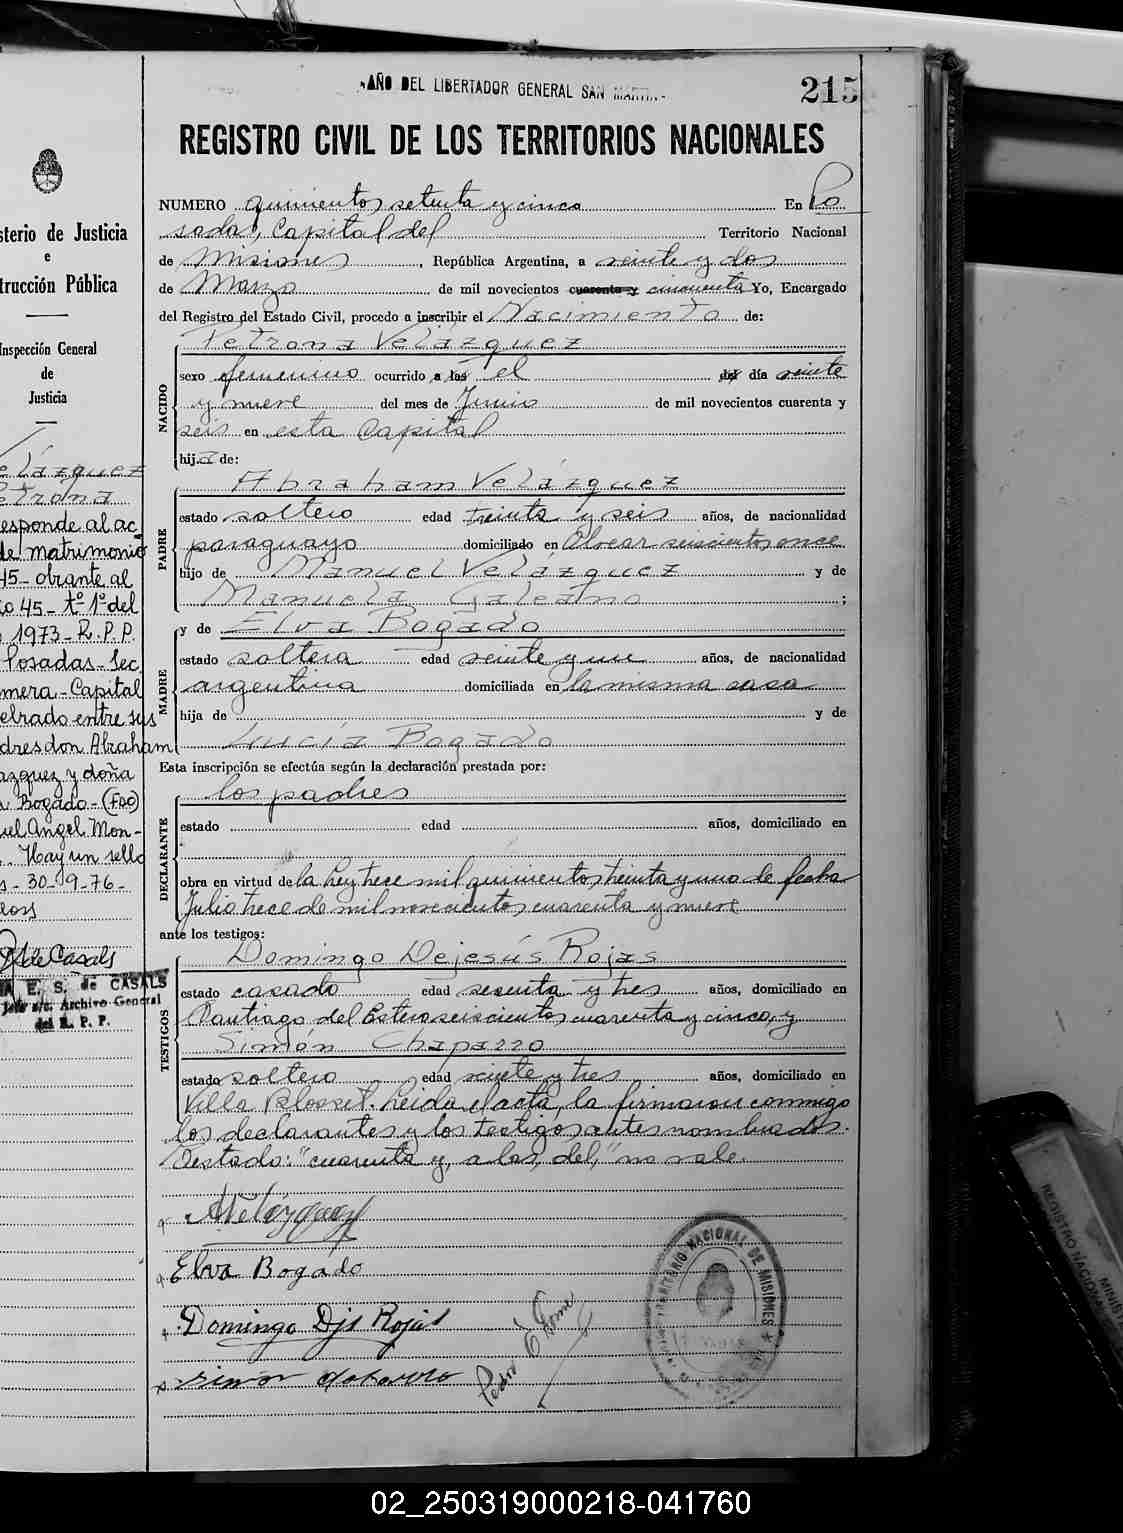 "AÑO DEL LIBERTADOR GENERAL SAN MARTIN"
215
REGISTRO CIVIL DE LOS TERRITORIOS NACIONALES
NUMERO quinientos setenta y cinco En Po
sadas, Capital del Territorio Nacional
de Misiones, República Argentina, a veinte y dos
de Marzo de mil novecientos cuarenta y cincuenta Yo, Encargado
del Registro del Estado Civil, procedo a inscribir el Nacimiento de:
Petrona Velázquez
NACIDO
sexo femenino ocurrido a las el del día veinte
y nueve del mes de Junio de mil novecientos cuarenta y
seis en esta Capital
hija de:
Abraham Velázquez
PADRE
estado soltero edad treinta y seis años, de nacionalidad
paraguayo domiciliado en Alvear seiscientos once
hijo de Manuel Velázquez y de
Manuela Galeano ;
y de Elva Bogado
MADRE
estado soltera edad veinte y un años, de nacionalidad
argentina domiciliada en la misma casa
hija de y de
Lucía Bogado
Esta inscripción se efectúa según la declaración prestada por:
los padres
DECLARANTE
estado edad años, domiciliado en
obra en virtud de la ley trece mil quinientos treinta y uno de fecha
Julio trece de mil novecientos cuarenta y nueve
ante los testigos:
Domingo Dejesús Rojas
TESTIGOS
estado casado edad sesenta y tres años, domiciliado en
Santiago del Estero seiscientos cuarenta y cinco, y
Simón Chaparro
estado soltero edad veinte y tres años, domiciliado en
Villa Blosset. Leida el acta, la firmaron conmigo
los declarantes y los testigos antes nombrados.
Testado: "cuarenta y, a las, del," no vale.
AVelázquez
Elva Bogado
Domingo Djs Rojas
Simon Chaparro
Pedro
TERRITORIO NACIONAL DE MISIONES
sterio de Justicia
e
trucción Pública
Inspección General
de
Justicia
elázquez
etrona
esponde al ac
de matrimonio
45- obrante al
io 45- tº 1º del
1973- R.P.P.
Posadas- Sec
mera- Capital
elbrado entre sus
dres don Abraham
azquez y doña
a Bogado- (FDO)
uel Angel Mon-
Hay un sello
s- 30-9-76-
de Casals
E. S. de CASALS
Jefe a/c. Archivo General
del R. P. P.
REGISTRO NACIONAL
MINIST
02_250319000218-041760